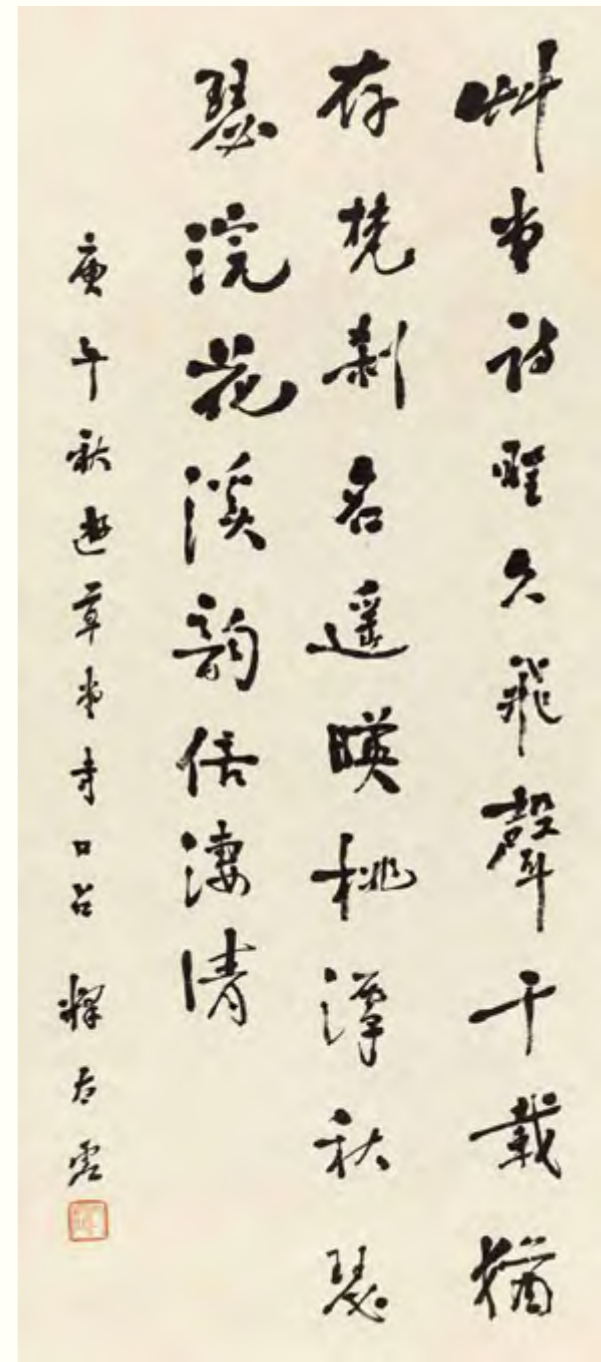 艸堂詩聖久飛聲千載猶
存梵刹名遥暎桃潭秋瑟
瑟浣花溪韵倍淒清
庚午秋遊草堂寺口占 釋太虛